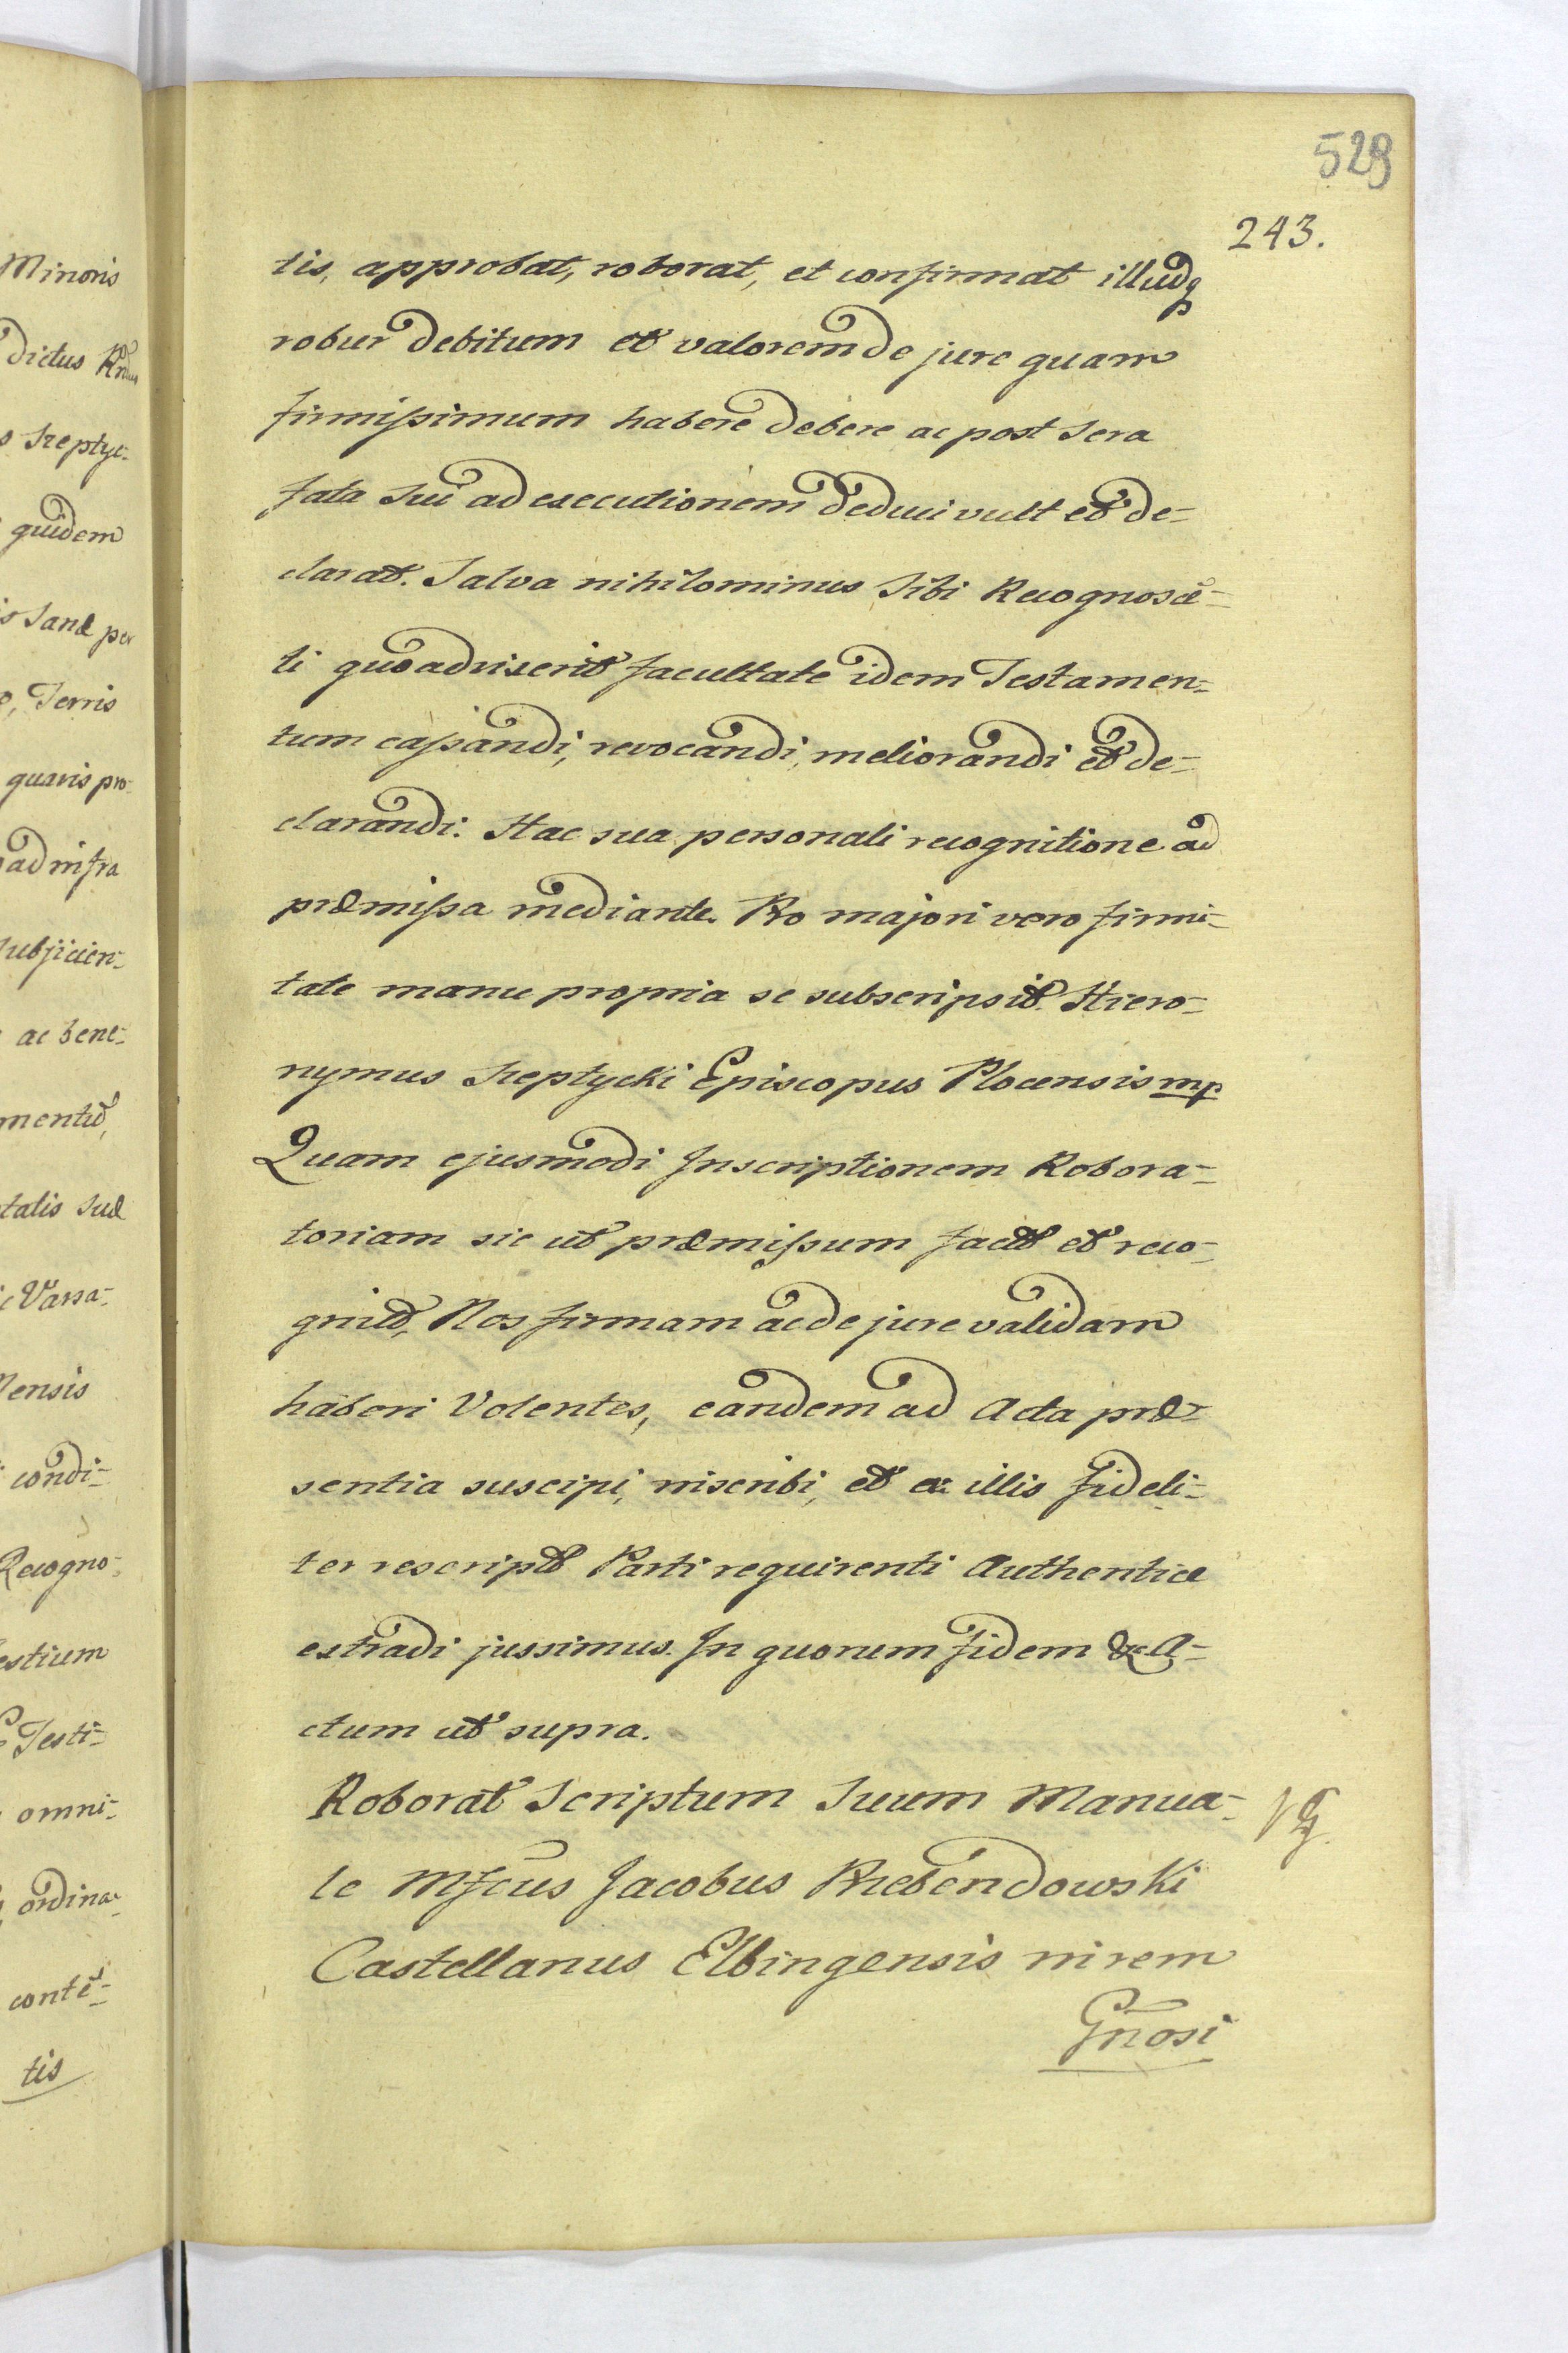 Minoris
dictus Rndus
o Szeptyc-
quidem
is sanæ per
o, Terris
quavis pro-
ad infra
subjicien-
ac bene-
mentũ,
talis suæ
c Varsa-
ensis
condi-
Recogno-
estium
Testi-
omni-
ordina-
contẽ-
tis
529
243.
tis, approbat, roborat, et confirmat illudq
robur debitum et valorem de jure quam
firmissimum habere debere ac post sera
fata sui ad executionem deduci vult et de-
clarat. Salva nihilominus sibi Recognoscẽ-
ti quoad vixerit facultate idem Testamen-
tum cassandi, revocandi, meliorandi et de-
clarandi. Hac sua personali recognitione ad
præmissa mediante. Pro majori vero firmi-
tate manu propria se subscripsit. Hiero-
nymus Szeptycki Episcopus Plocensis mp
Quam ejusmodi Inscriptionem Robora-
toriam sic ut præmissum factã et reco-
gnitã, Nos firmam ac de jure validam
haberi Volentes, eandem ad Acta præ-
sentia suscipi, inscribi, et ex illis fideli-
ter rescriptã Parti requirenti Authentice
extradi jussimus. In quorum fidem &c A-
ctum ut supra.
Roborat Scriptum Suum Manua-
le Mfcus Jacobus Przebendowski
Castellanus Elbingensis in rem
Gnosi